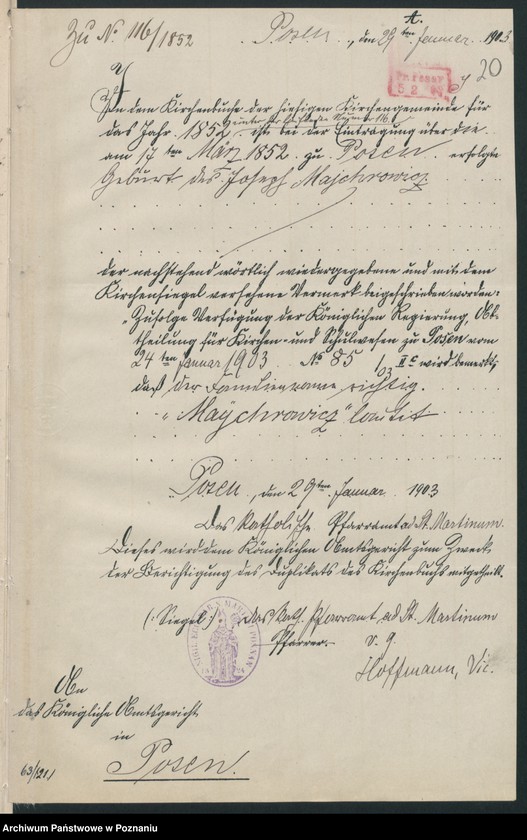 Zu No 116/1852
A.
Posen, den 29ten Januar 1903
20
In dem Kirchenbuche der hiesigen Kirchengemeinde für
das Jahr 1852 unter der laufenden Nummer 116 ist bei der Eintragung über die
am 17ten März 1852 zu Posen erfolgte
Geburt des Joseph Majchrowicz
der nachstehend wörtlich wiedergegebene und mit dem
Kirchensiegel versehene Vermerk beigeschrieben worden:
"Zufolge Verfügung der Königlichen Regierung, Ab-
theilung für Kirchen- und Schulwesen zu Posen vom
24ten Januar 1903 No 85/03 IIc wird bemerkt,
daß der Familienname richtig
"Maychrowicz" lautet
Posen, den 29ten Januar 1903
Das Katholische Pfarramt ad St. Martinum.
Dieses wird dem Königlichen Amtsgericht zum Zweck
der Berichtigung des Duplikats des Kirchenbuchs mitgetheilt.
(: Siegel :) Das kath. Pfarramt ad St. Martinum
Pfarrer. v. g.
Hoffmann, Vic.
An
das Königliche Amtsgericht
in
Posen.
Archiwum Państwowe w Poznaniu